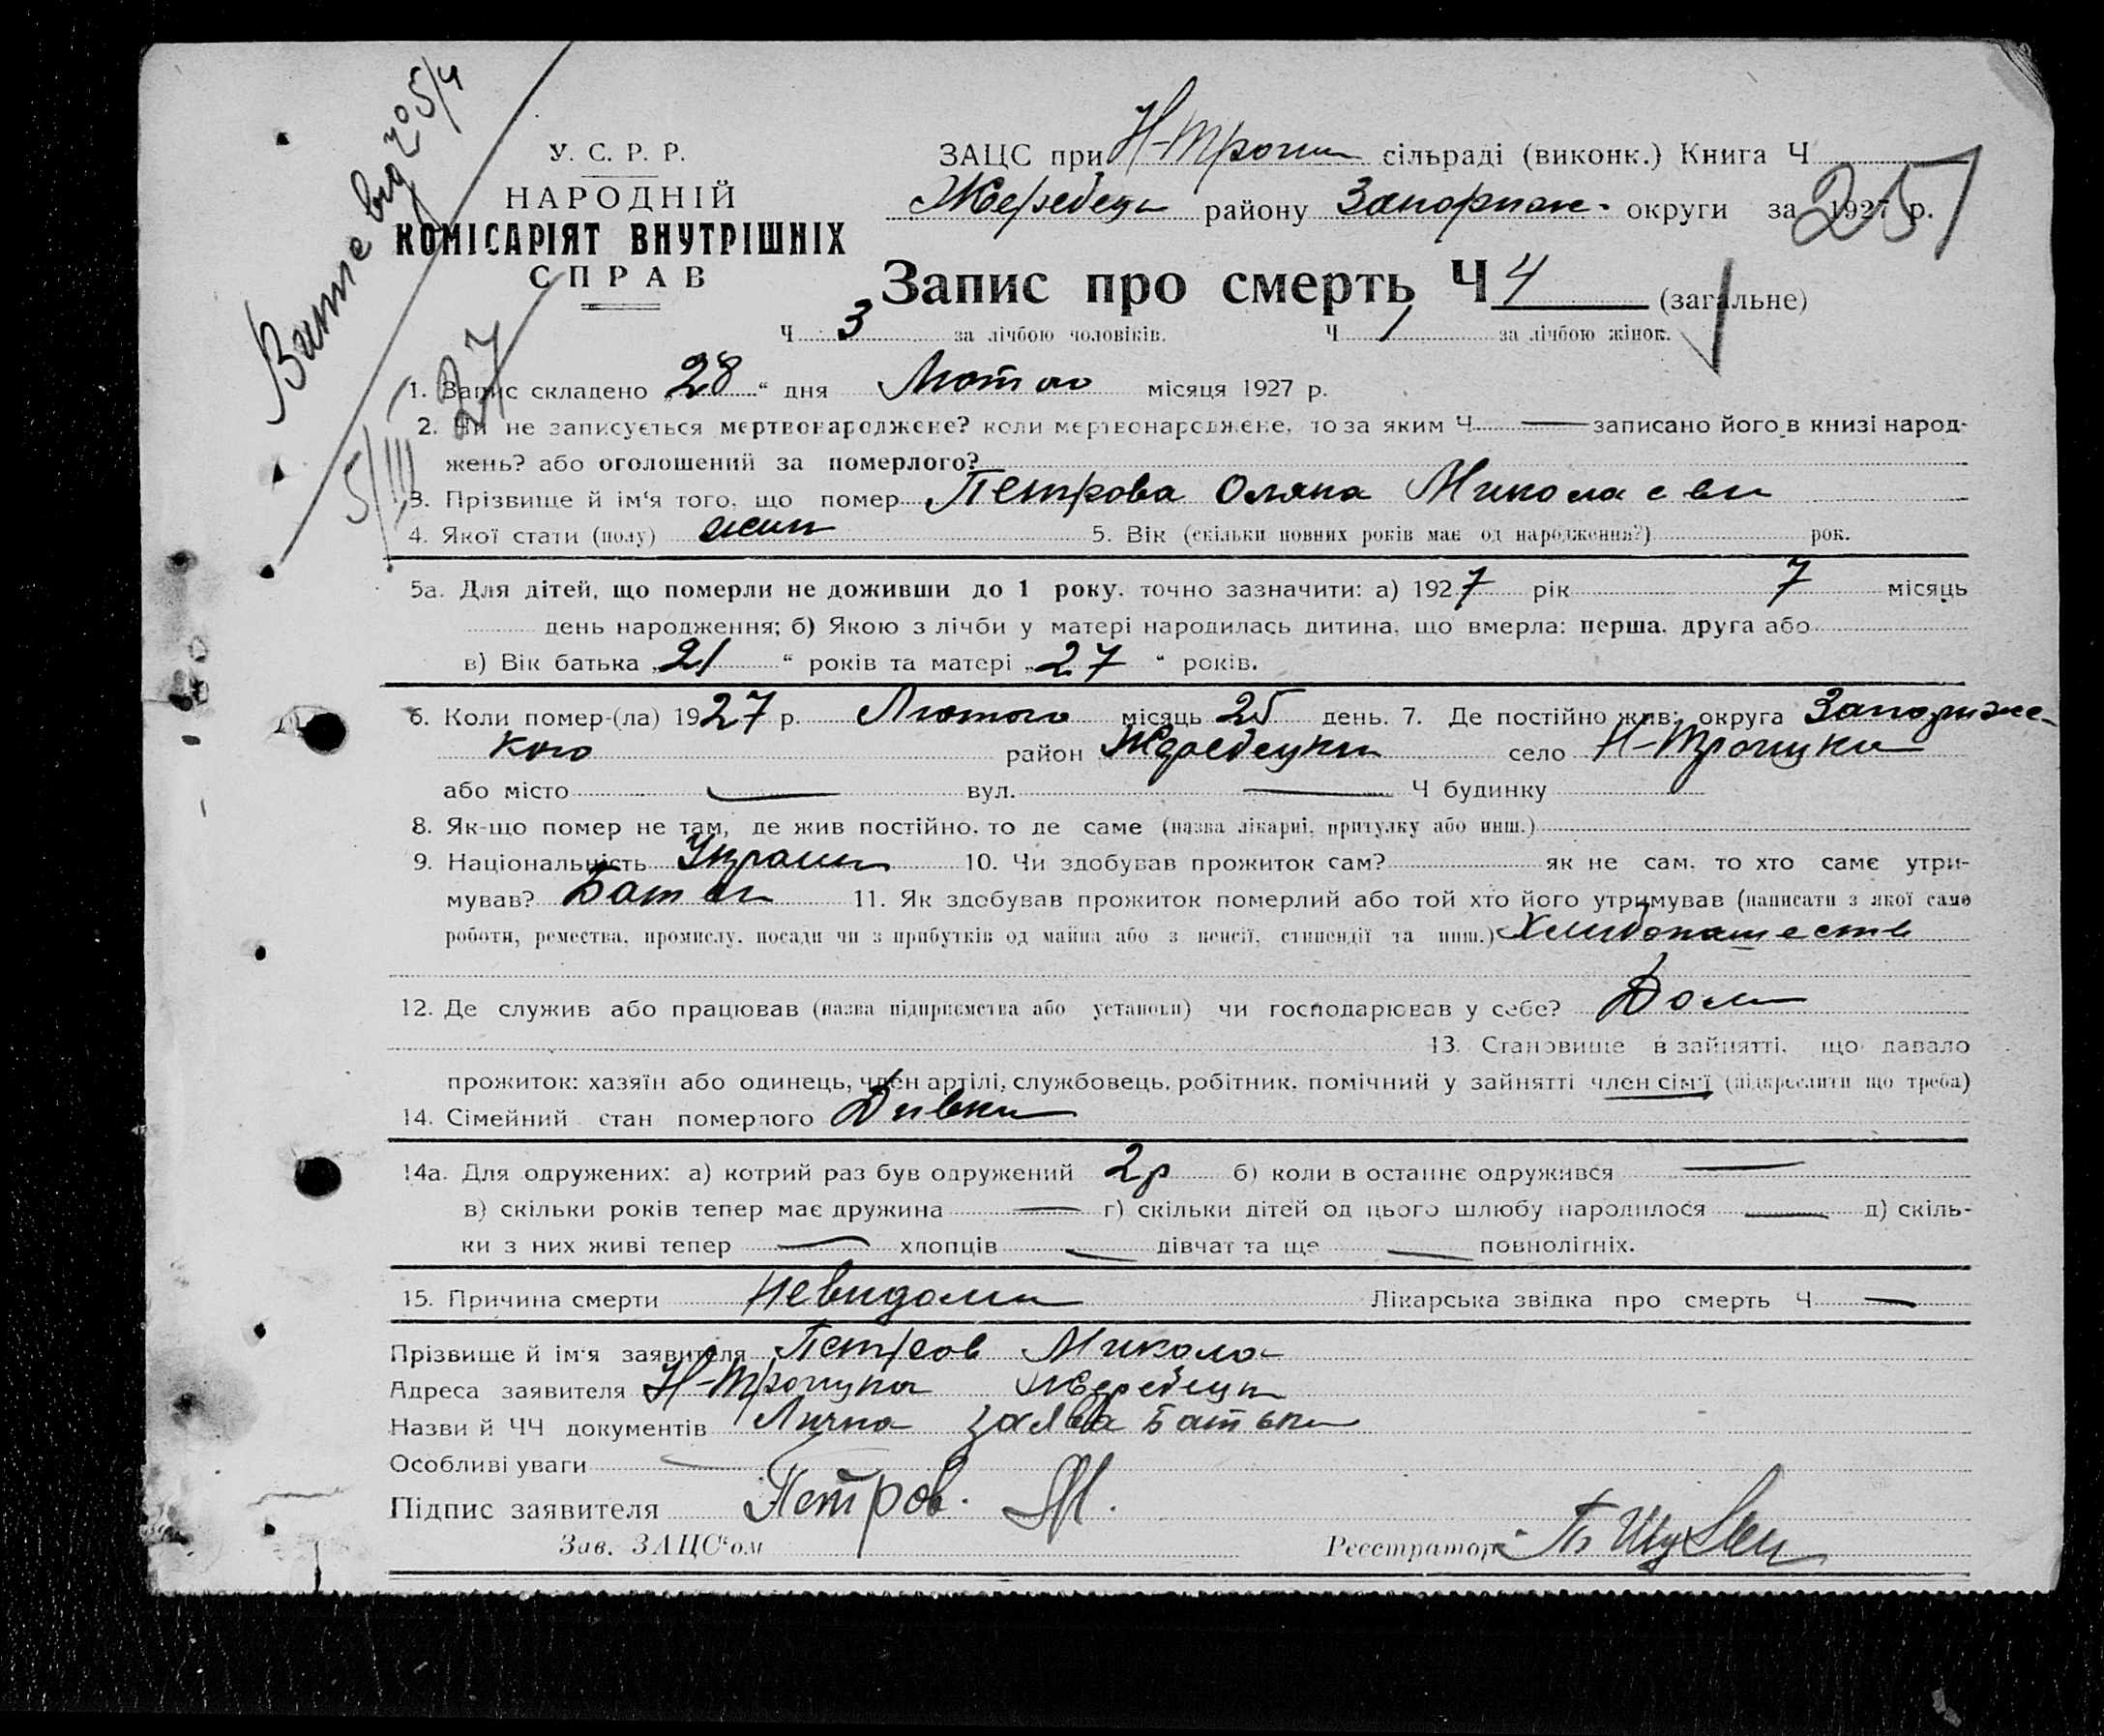 У. С. Р. Р.
НАРОДНІЙ
КОМІСАРІЯТ ВНУТРІШНІХ
СПРАВ
ЗАЦС при сільраді (виконк.) Книга Ч
Жеребець району Запоріж- округи за 1927 р.
257
Запис про смерть Ч 4 (загальне)
Ч 3 за лічбою чоловіків. Ч 1 за лічбою жінок.
1. Запис складено „28“ дня Лютого місяця 1927 р.
2. Чи не записується мертвонароджене? коли мертвонароджене, то за яким Ч — записано його в книзі народ-
жень? або оголошений за померлого?
3. Прізвище й ім'я того, що помер Петрова Оляна Миколаєви
4. Якої стати (полу) жин 5. Вік (скільки повних років має од народження?) рок.
5а. Для дітей, що померли не доживши до 1 року, точно зазначити: а) 1927 рік 7 місяць
день народження; б) Якою з лічби у матері народилась дитина, що вмерла: перша, друга або
в) Вік батька „21“ років та матері „27“ років.
6. Коли помер-(ла) 1927 р. Лютого місяць 25 день. 7. Де постійно жив: округа Запоріжс-
кого район село Н-Троицки
або місто — вул. — Ч будинку
8. Як-що помер не там, де жив постійно, то де саме (назва лікарні, притулку або инш.)
9. Національність Украин 10. Чи здобував прожиток сам? як не сам, то хто саме утри-
мував? 11. Як здобував прожиток померлий або той хто його утримував (написати з якої саме
роботи, ремества, промислу, посади чи з прибутків од майна або з пенсії, стипендії та инш.)
12. Де служив або працював (назва підприємства або установи) чи господарював у себе? Дом
13. Становище в зайнятті, що давало
прожиток: хазяїн або одинець, член артілі, службовець, робітник, помічний у зайнятті член сім'ї (підкреслити що треба)
14. Сімейний стан померлого Дивки
14а. Для одружених: а) котрий раз був одружений 2р б) коли в останнє одружився —
в) скільки років тепер має дружина — г) скільки дітей од цього шлюбу народилося — д) скіль-
ки з них живі тепер — хлопців — дівчат та ще — повнолітніх.
15. Причина смерти невидома Лікарська звідка про смерть Ч —
Прізвище й ім'я заявителя Петров Микола
Адреса заявителя Н-Троицка Жеребецк
Назви й ЧЧ документів Лична заява Батьки
Особливі уваги —
Підпис заявителя Петров. М.
Зав. ЗАЦС'ом Реєстратор